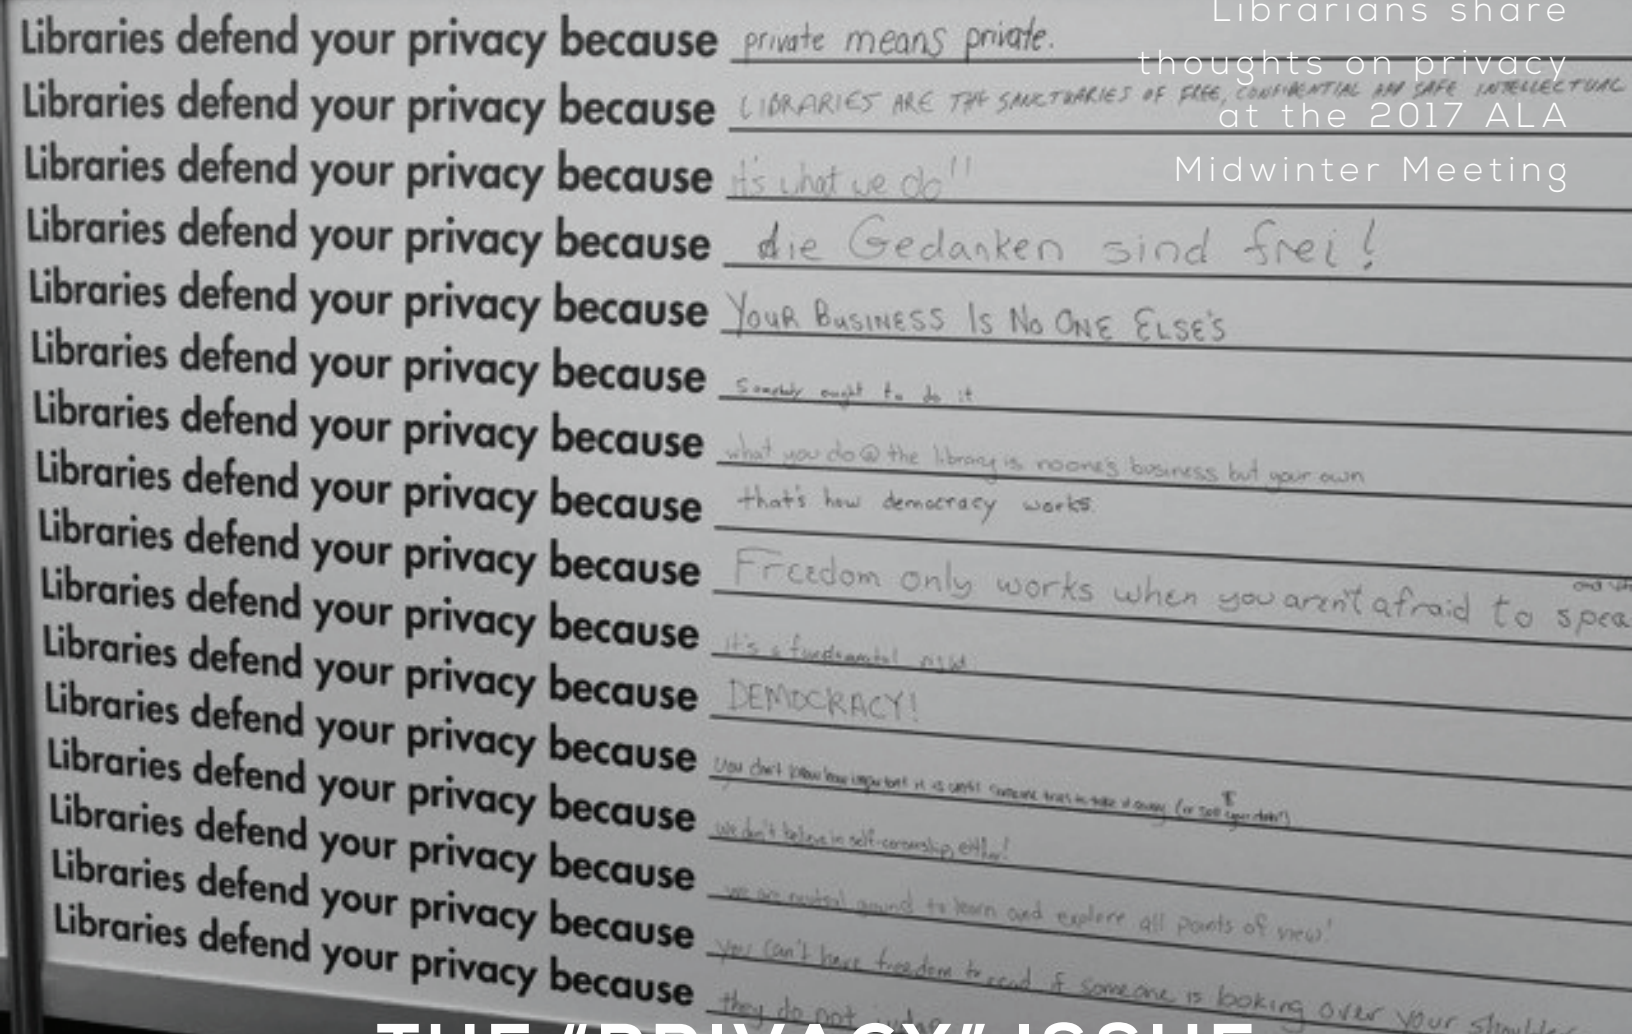 Librarians share
thoughts on privacy
at the 2017 ALA
Midwinter Meeting
Libraries defend your privacy because private means private.
Libraries defend your privacy because LIBRARIES ARE THE SANCTUARIES OF FREE, CONFIDENTIAL AND SAFE INTELLECTUAL
Libraries defend your privacy because it's what we do!!
Libraries defend your privacy because die Gedanken sind frei!
Libraries defend your privacy because YOUR BUSINESS IS NO ONE ELSE'S
Libraries defend your privacy because Somebody ought to do it
Libraries defend your privacy because what you do @ the library is noone's business but your own
Libraries defend your privacy because that's how democracy works.
Libraries defend your privacy because Freedom only works when you aren't afraid to spea
Libraries defend your privacy because it's a fundamental right
Libraries defend your privacy because DEMOCRACY!
Libraries defend your privacy because you don't know how important it is until someone tries to take it away (or your data)
Libraries defend your privacy because we don't believe in self-censorship, either!
Libraries defend your privacy because we are neutral ground to learn and explore all points of view!
Libraries defend your privacy because you can't have freedom to read if someone is looking over your should
Libraries defend your privacy because they do not
THE "PRIVACY" ISSUE